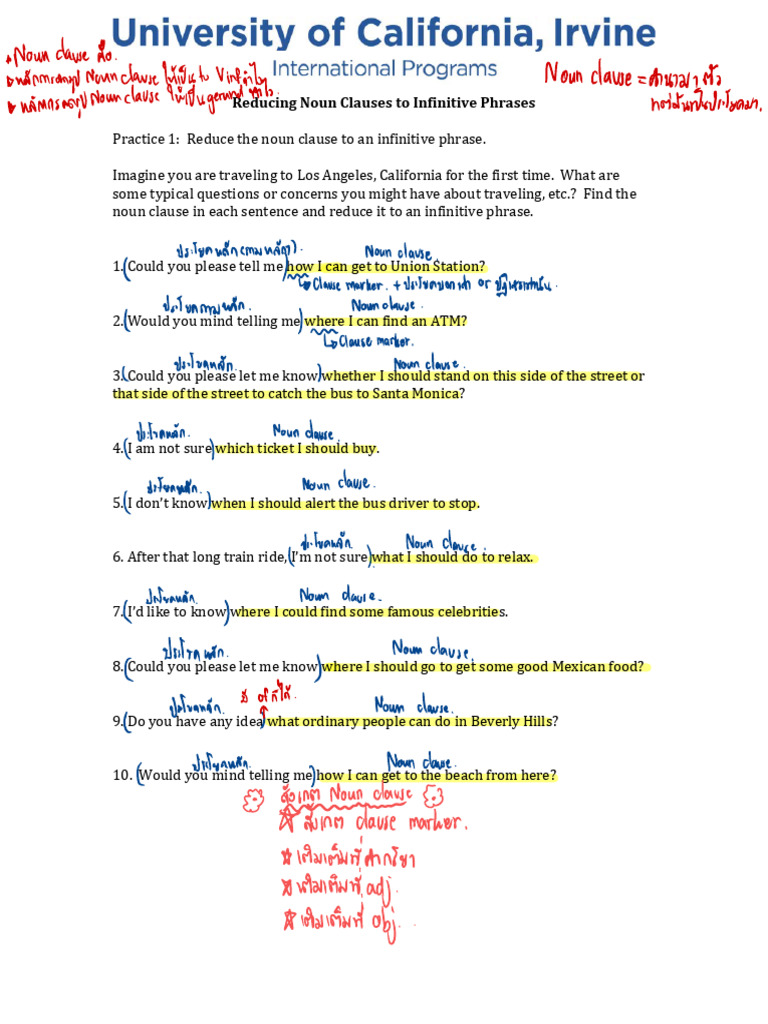 University of California, Irvine
International Programs
• Noun clause คือ
• หลักการลดรูป Noun clause ให้เป็น to V inf ทำไง
• หลักการลดรูป Noun clause ให้เป็น gerund
Noun clause = คำนาม 1 ตัว
Reducing Noun Clauses to Infinitive Phrases
Practice 1: Reduce the noun clause to an infinitive phrase.
Imagine you are traveling to Los Angeles, California for the first time. What are
some typical questions or concerns you might have about traveling, etc.? Find the
noun clause in each sentence and reduce it to an infinitive phrase.
ประโยคหลัก Noun clause
1. (Could you please tell me) how I can get to Union Station?
↳ Clause marker. + ประโยคบอกเล่า or ปฏิเสธเท่านั้น
ประโยคหลัก. Noun clause.
2. (Would you mind telling me) where I can find an ATM?
↳ Clause marker.
ประโยคหลัก. Noun clause.
3. (Could you please let me know) whether I should stand on this side of the street or
that side of the street to catch the bus to Santa Monica?
ประโยคหลัก. Noun clause.
4. (I am not sure) which ticket I should buy.
ประโยคหลัก. Noun clause.
5. (I don't know) when I should alert the bus driver to stop.
ประโยคหลัก Noun clause.
6. After that long train ride, (I'm not sure) what I should do to relax.
ประโยคหลัก. Noun clause.
7. (I'd like to know) where I could find some famous celebrities.
ประโยคหลัก. Noun clause.
8. (Could you please let me know) where I should go to get some good Mexican food?
ประโยคหลัก. of ก็ได้. Noun clause.
9. (Do you have any idea) what ordinary people can do in Beverly Hills?
ประโยคหลัก. Noun clause.
10. (Would you mind telling me) how I can get to the beach from here?
สังเกต Noun clause
☆ สังเกต clause marker.
☆ เติมเต็มที่คำกริยา
☆ เติมเต็มที่ adj.
☆ เติมเต็มที่ obj.